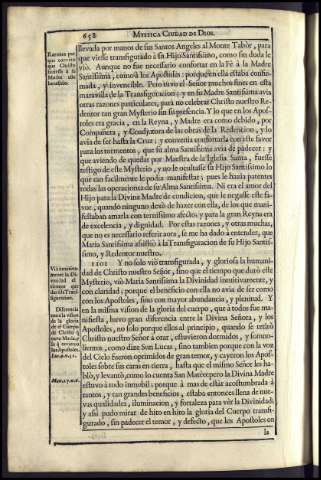 658 MYSTICA CIUDAD DE DIOS.
llevada por manos de sus Santos Angeles al Monte Tabòr, para
que viesse transfigurado à su Hijo Santissimo, como sin duda le
viò. Aunque no fue necessario confortar en la Fè à la Madre
Santissima, como à los Apostoles: porque en ella estaba confir-
mada, y invencible. Pero tuvo el Señor muchos fines en esta
maravilla de la Transfiguracion; y en su Madre Santissima avia
otras razones particulares, para no celebrar Christo nuestro Re-
dentor tan gran Mysterio sin su presencia. Y lo que en los Apos-
toles era gracia, en la Reyna, y Madre era como debido, por
Compañera, y Coadjutora de las obras de la Redencion, y lo
avia de ser hasta la Cruz; y convenia confortarla con este favor
para los tormentos, que su alma Santissima avia de padecer; y
que aviendo de quedar por Maestra de la Iglesia Santa, fuesse
testigo de este Mysterio, y no le ocultasse su Hijo Santissimo lo
que tan facilmente le podia manifestar; pues le hazia patentes
todas las operaciones de su Alma Santissima. Ni era el amor del
Hijo para la Divina Madre de condicion, que le negasse este fa-
vor, quando ninguno dexò de hazer con ella, de los que mani-
festaban amarla con ternissimo afecto; y para la gran Reyna era
de excelencia, y dignidad. Por estas razones, y otras muchas,
que no es necessario referir aora, se me ha dado à entender, que
Maria Santissima assistiò à la Transfiguracion de su Hijo Santis-
simo, y Redentor nuestro.
1101 Y no solo viò transfigurada, y gloriosa la humani-
dad de Christo nuestro Señor, sino que el tiempo que durò este
Mysterio, viò Maria Santissima la Divinidad intuitivamente, y
con claridad: porque el beneficio con ella no avia de ser como
con los Apostoles, sino con mayor abundancia, y plenitud. Y
en la misma vision de la gloria del cuerpo, que à todos fue ma-
nifiesta, huvo gran diferencia entre la Divina Señora, y los
Apostoles, no solo porque ellos al principio, quando se retirò
Christo nuestro Señor à orar, estuvieron dormidos, y somno-
lientos, como dize San Lucas; sino tambien porque con la voz
del Cielo fueron oprimidos de gran temor, y cayeron los Apos-
toles sobre sus caras en tierra, hasta que el mismo Señor les ha-
blò, y levantò, como lo cuenta San Mateo; pero la Divina Madre
estuvo à todo inmobil; porque à mas de estàr acostumbrada à
tantos, y tan grandes beneficios, estaba entonces llena de nue-
vas qualidades, iluminacion, y fortaleza para vèr la Divinidad;
y assi pudo mirar de hito en hito la gloria del Cuerpo transfi-
gurado, sin padecer el temor, y defecto, que los Apostoles en
la